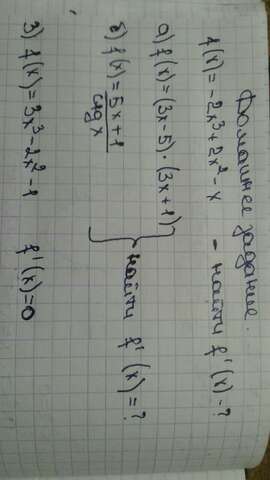 Домашнее задание.
f(x) = -2x³+2x²-x - найти f'(x)-?
а) f(x) = (3x-5)·(3x+1)
б) f(x) = 5x+1 / ctg x } найти f'(x) = ?
3) f(x) = 3x³-2x²-1 f'(x)=0